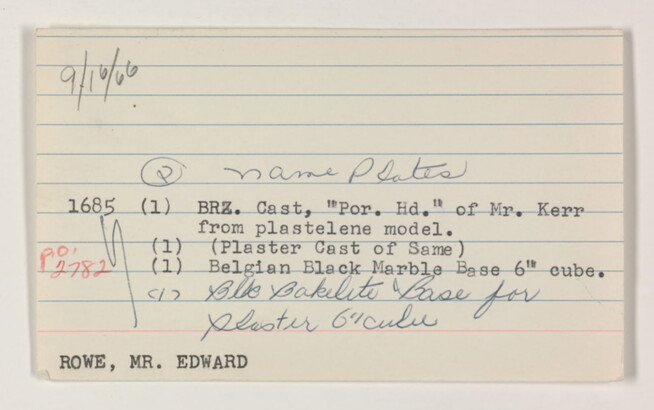 9/16/66
(2) name Plates
1685 (1) BRZ. Cast, "Por. Hd." of Mr. Kerr
from plastelene model.
(1) (Plaster Cast of Same)
P.O. 2782 (1) Belgian Black Marble Base 6" cube.
(1) Blk Bakelite Base for
plaster 6" cube
ROWE, MR. EDWARD